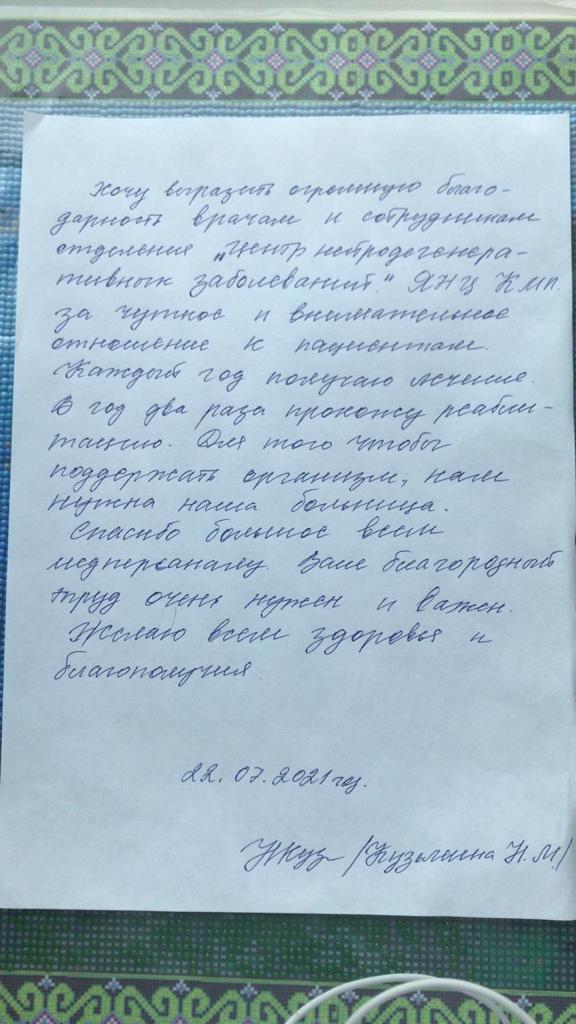 Хочу выразить огромную благо-
дарность врачам и сотрудникам
отделения "Центр нейродегенера-
тивных заболеваний" ЯНЦ КМП.
за чуткое и внимательное
отношение к пациентам.
Каждый год получаю лечение.
В год два раза прохожу реабили-
тацию. Для того чтобы
поддержать организм, нам
нужна наша больница.
Спасибо большое всем
медперсоналу. Ваш благородный
труд очень нужен и важен.
Желаю всем здоровья и
благополучия.
22.07.2021 год.
/Кузьмина Н.М/